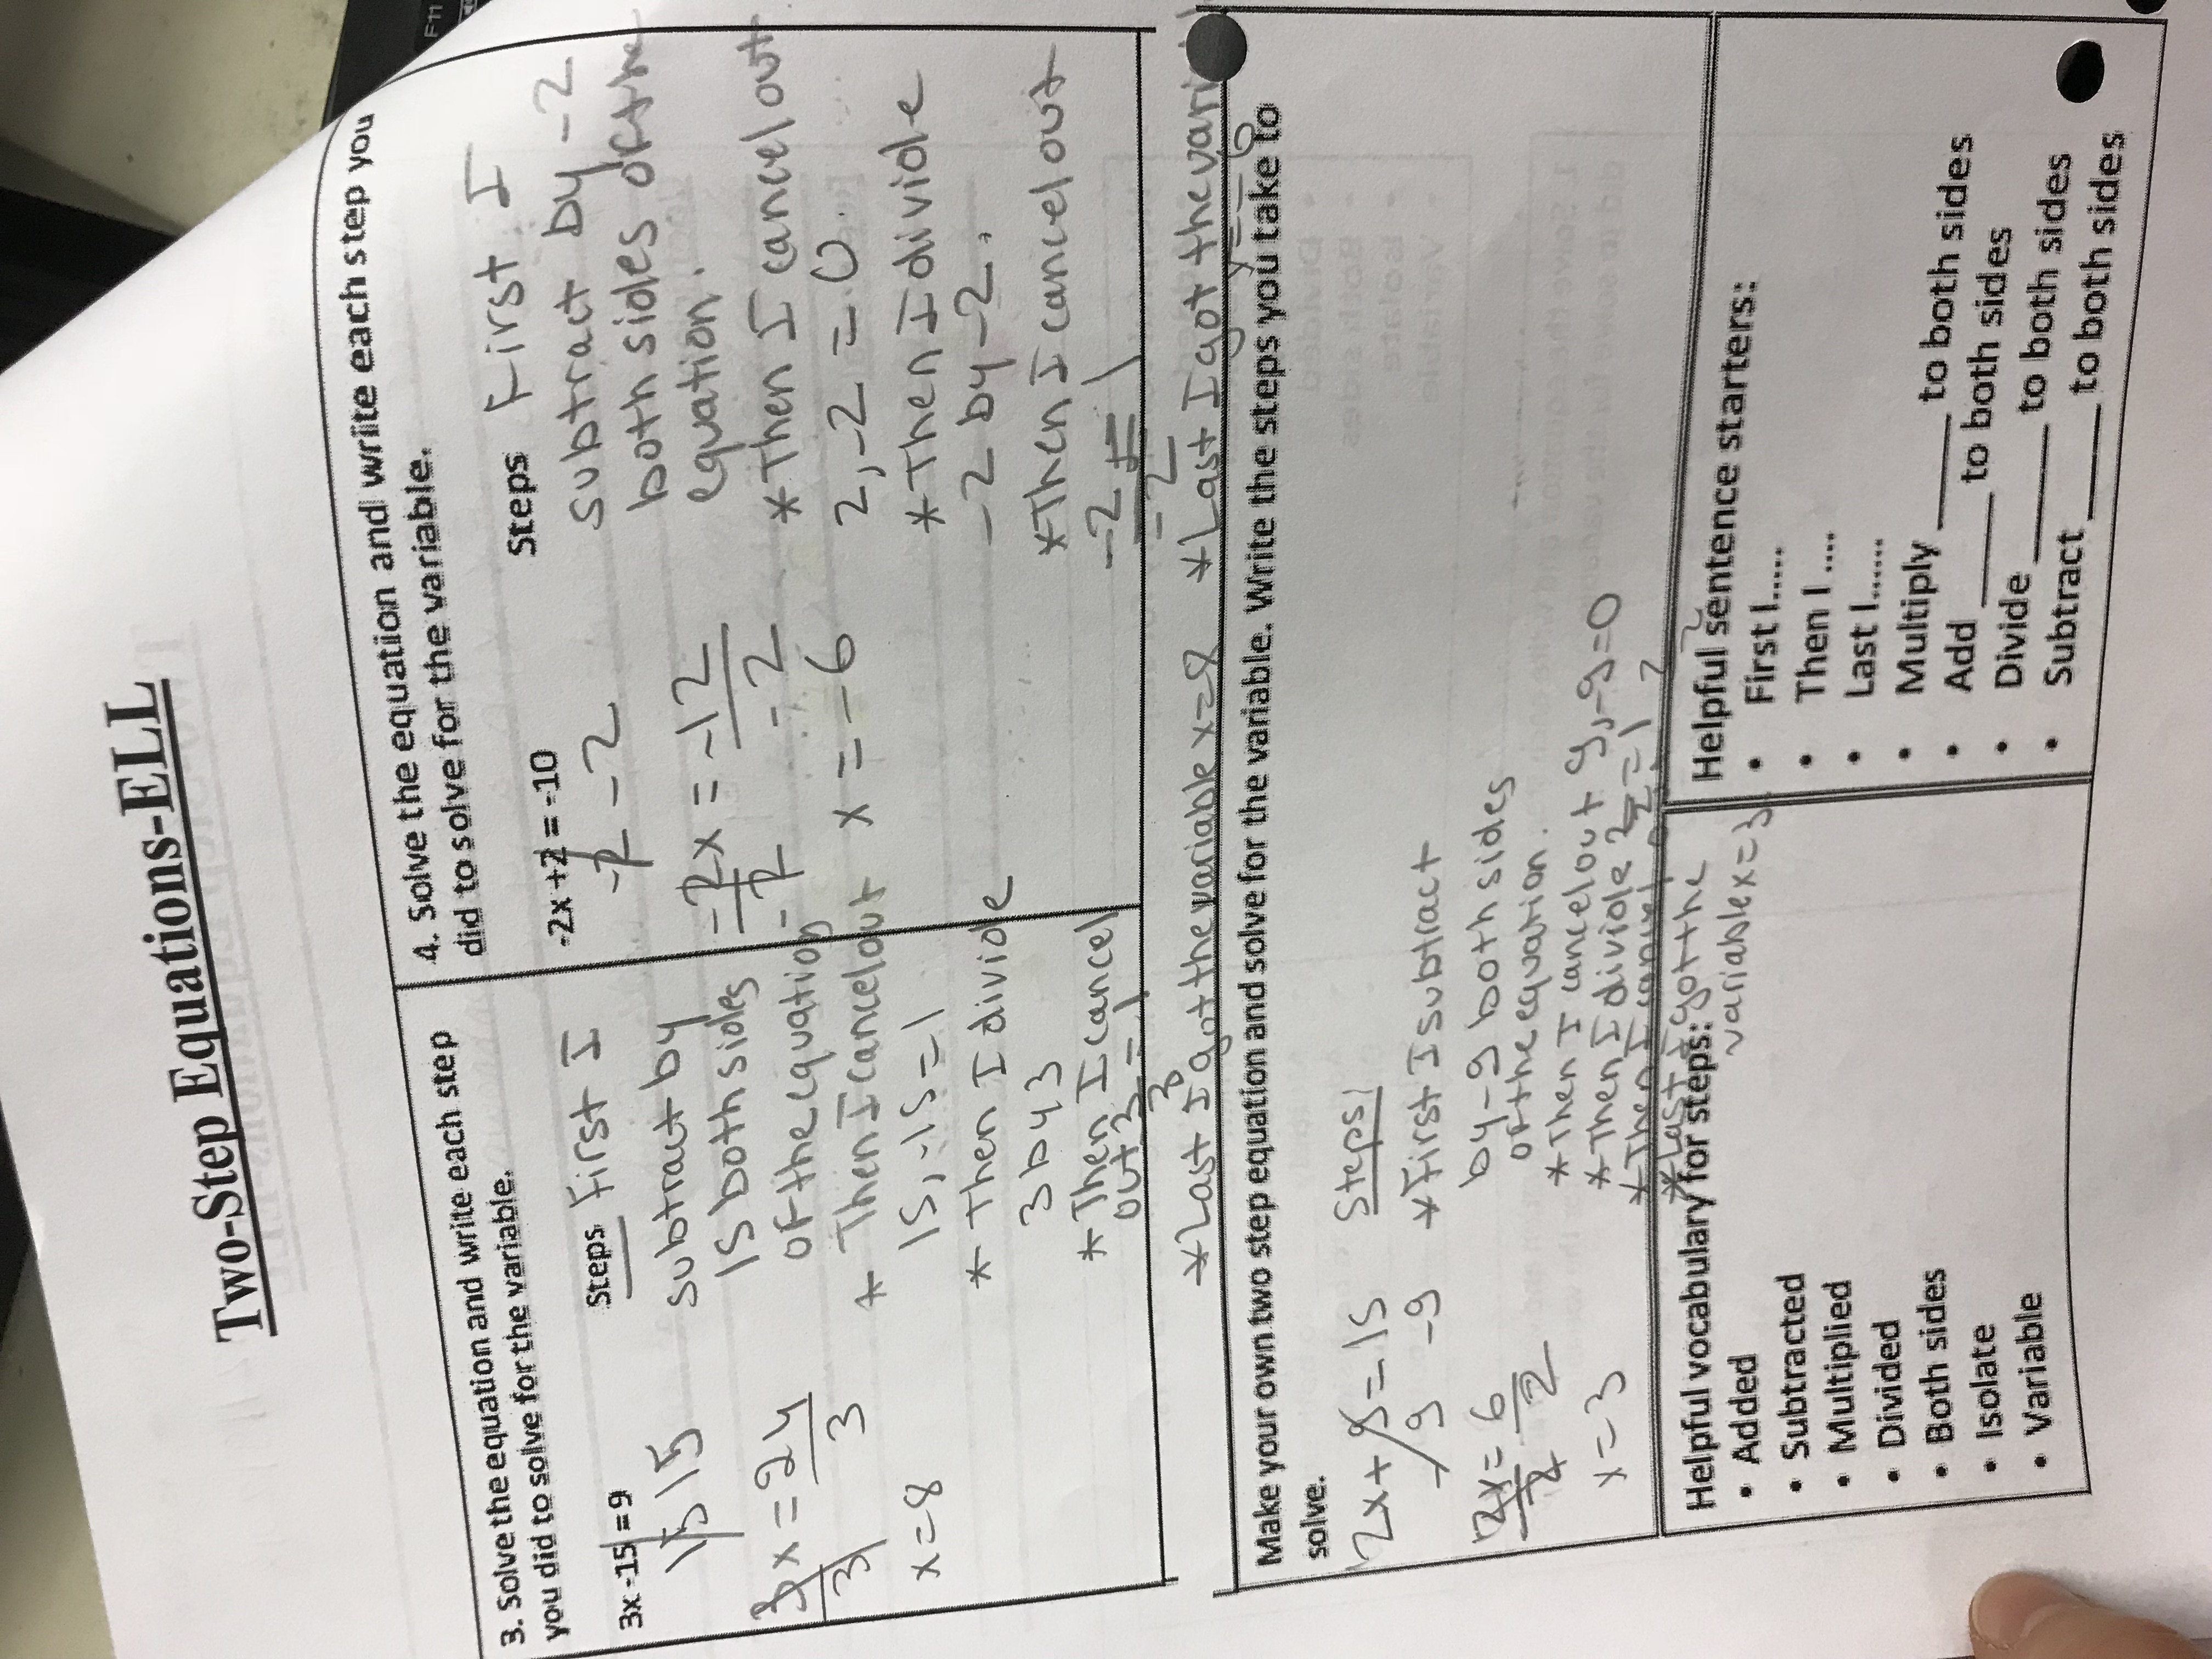 Two-Step Equations-ELL
3. Solve the equation and write each step
you did to solve for the variable.
3x -15 = 9
15 15
3x = 24
3 3
x = 8
Steps First I
subtract by
15 both sides
of the equation
* Then I cancel out
15, -15 = 1
* Then I divide
3 by 3
* Then I cancel
out 3 = 1
3
* Last I got the variable x = 8
4. Solve the equation and write each step you
did to solve for the variable.
-2x + 2 = -10
-2 -2
-2x = -12
-2 -2
x = -6
Steps First I
subtract by -2
both sides of the
equation.
* Then I cancel out
2, -2 = 0.
* Then I divide
-2 by -2.
* Then I cancel out
-2 = 1
-2
* Last I got the vari
Make your own two step equation and solve for the variable. Write the steps you take to
solve.
2x + 9 = 15
- 9 -9
2x = 6
2 2
x = 3
Steps!
* First I subtract
by -9 both sides
of the equation.
* Then I cancel out 9, -9 = 0
* Then I divide 2
* Then I cancel
* Last I got the
variable x = 3
Helpful vocabulary for steps:
• Added
• Subtracted
• Multiplied
• Divided
• Both sides
• Isolate
• Variable
Helpful sentence starters:
• First I.....
• Then I ....
• Last I.......
• Multiply ______ to both sides
• Add ______ to both sides
• Divide ______ to both sides
• Subtract ______ to both sides
F11